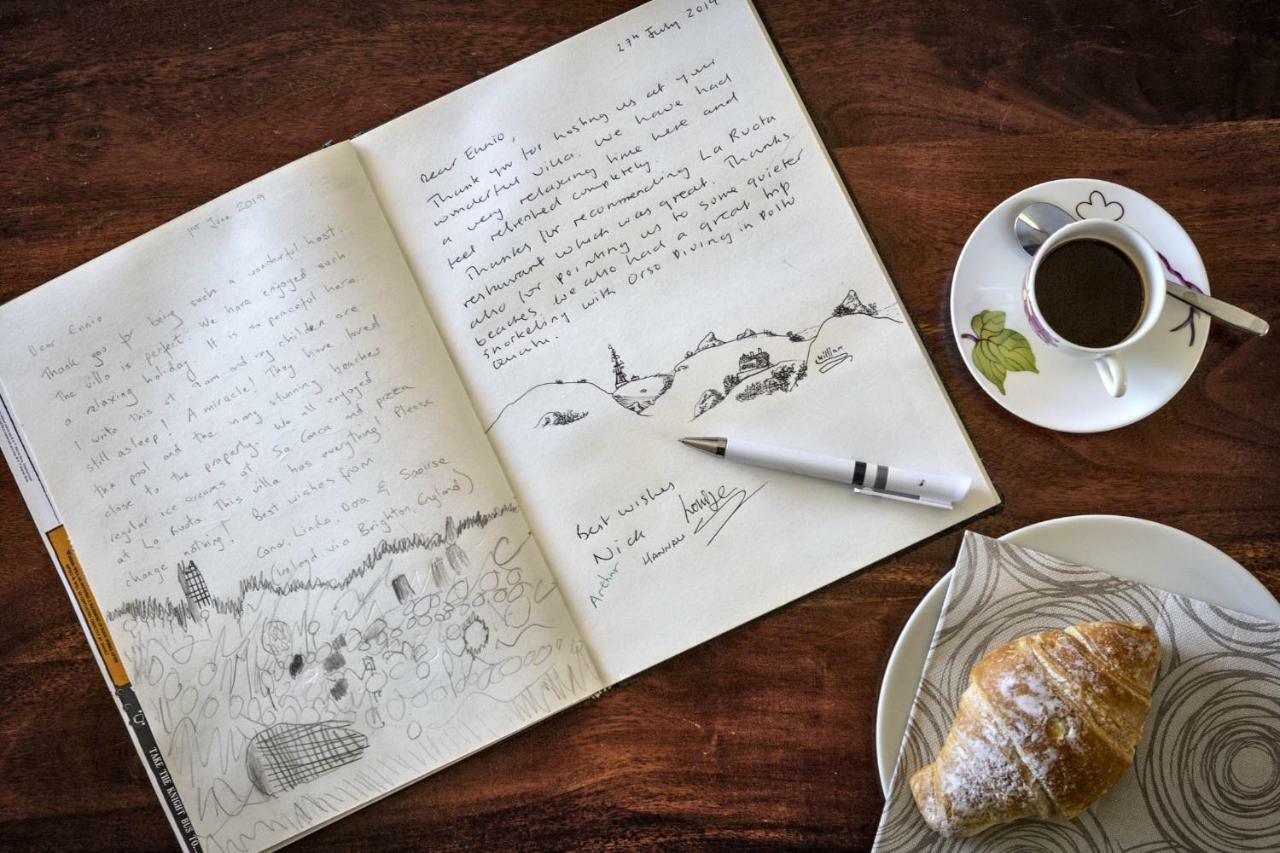 1st June 2019
Dear Ennio
Thank you for being such a wonderful host.
The villa is perfect. We have enjoyed such
a relaxing holiday. It is so peaceful here.
I write this at 9am and my children are
still asleep! A miracle! They have loved
the pool and the many stunning beaches
close to the property. We all enjoyed
regular ice creams at Sa Conca and pizza
at La Ruota. This villa has everything! Please
change nothing! Best wishes from
Conor, Linda, Dora & Saoirse
(via Brighton, England)
TAKE THE KNIGHT BUS TO...
27th July 2019
Dear Ennio,
Thank you for hosting us at your
wonderful villa. We have had
a very relaxing time here and
feel refreshed completely.
Thanks for recommending La Ruota
restaurant which was great. Thanks
also for pointing us to some quieter
beaches. We also had a great trip
snorkeling with Orso Diving in Poltu
Quatu.
William
Best wishes
Nick
Louise
HANNAH
Arthur